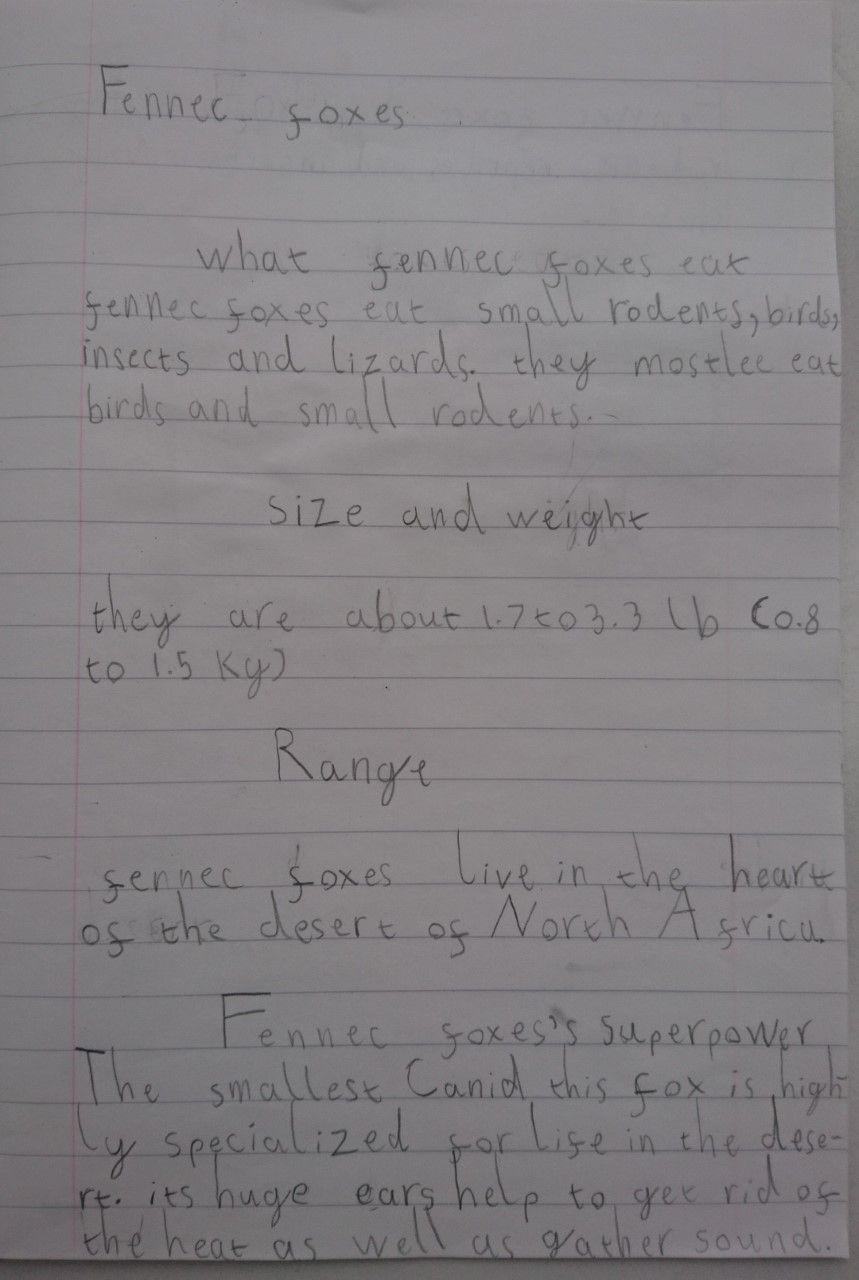 Fennec foxes
what fennec foxes eat
fennec foxes eat small rodents, birds,
insects and lizards. they mostlee eat
birds and small rodents.
size and weight
they are about 1.7 to 3.3 lb (0.8
to 1.5 Kg)
Range
fennec foxes live in the heart
of the desert of North Africa.
Fennec foxes's superpower
The smallest Canid this fox is high-
ly specialized for life in the dese-
rt. its huge ears help to get rid of
the heat as well as gather sound.